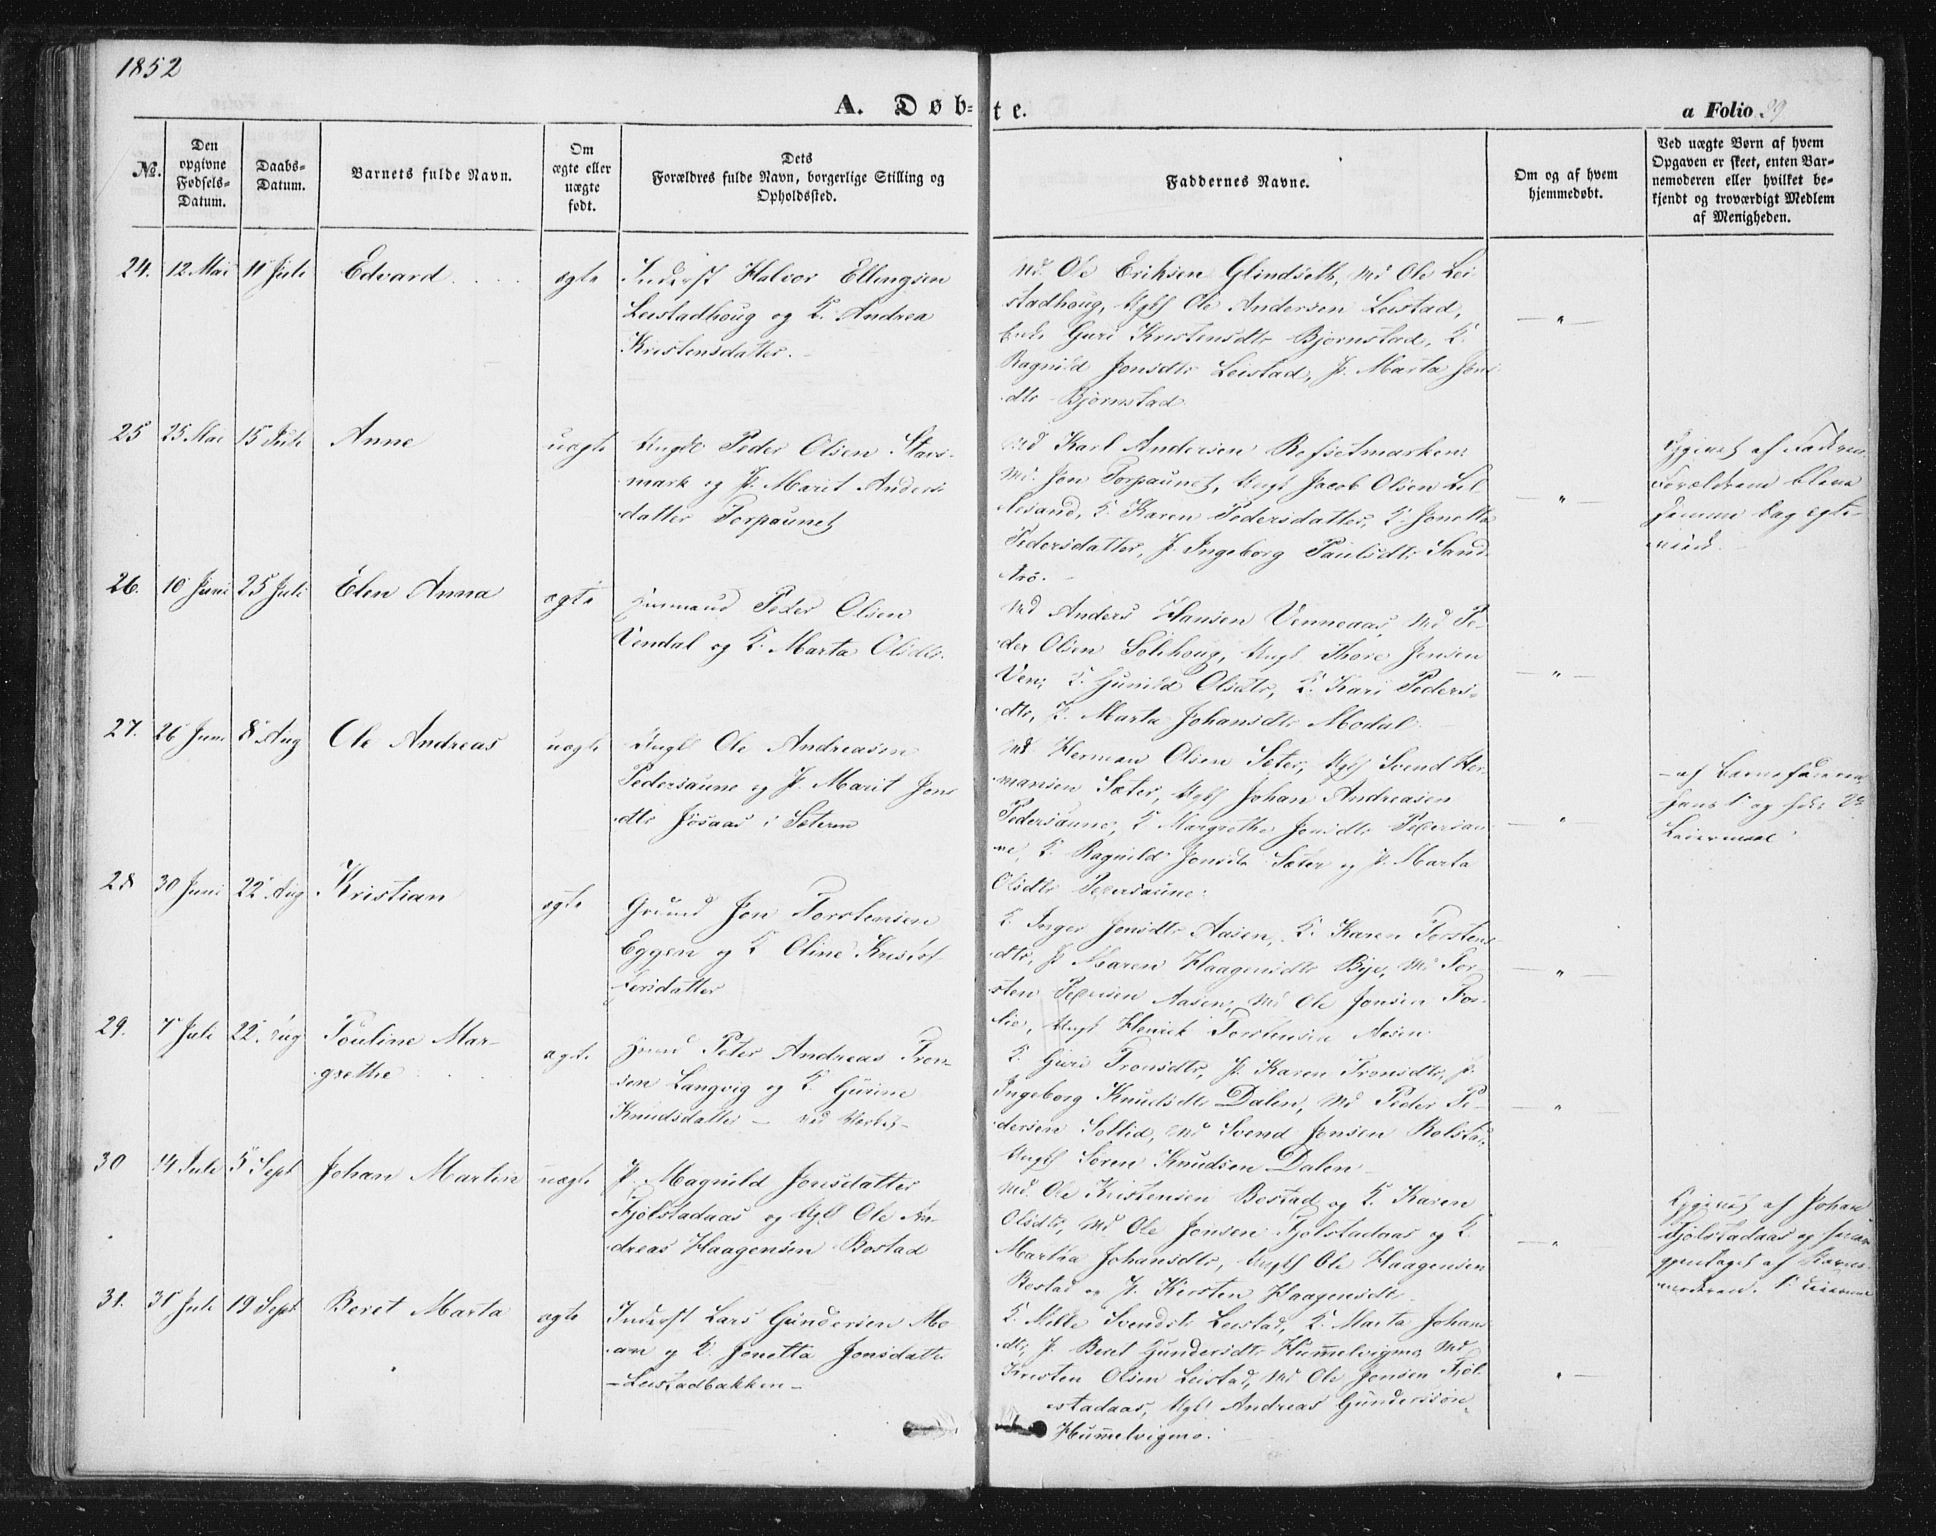 1852
A. Døb-te.
a Folio 39
No.
Den opgivne Fødsels-Datum.
Daabs-Datum.
Barnets fulde Navn.
Om ægte eller uægte født.
Dets Forældres fulde Navn, borgerlige Stilling og Opholdssted.
Faddernes Navne.
Om og af hvem hjemmedøbt.
Ved uægte Børn af hvem Opgaven er skeet, enten Barnemoderen eller hvilket bekjendt og troværdigt Medlem af Menigheden.
24. 12 Mai 11 Juli Edvard ægte
Inderst Halvor Ellingsen
Leistadhoug og K. Andrea
Kristensdatter.
Md. Ole Eriksen Glindseth, Md Ole Lei
stadhoug, Ungk Ole Andersen Leistad,
Guri Kristensdtr Bjørnstad, K.
Ragnild Jonsdtr Leistad, P. Marta Jons
dtr Bjørnstad
25 25 Mai 15 Juli Anne uægte
Ungk Peder Olsen Stavs-
mark og P. Marit Anders
datter Torpaunet
Md Karl Andersen Refsetmarken
Md. Jon Torpaunet, Ungk Jacob Olsen Lil
lesand, K. Karen Pedersdatter, K. Jonetta
Pedersdatter, P. Ingeborg Paulsdtr Sand
Opgivet af Faderen
Forældrene bleve
samme Dag egte-
viede.
26. 10 Juni 25 Juli Elen Anna ægte
Huusmand Peder Olsen
Vendal og K. Marta Olsdtr.
Md Anders Hansen Venneaas, Md Pe-
der Olsen Solihoug, Ungk. Thore Jensen
Ven, K. Gunild Olsdtr, K. Kari Peders-
dtr, K. Marta Johansdtr Modal
27. 26 Juni 8 Aug Ole Andreas uægte
Ungk Ole Andreasen
Pedersaune og P. Marit Jons
dtr Josaas i Sæteren
Md Herman Olsen Seter, Ungk Svend Her-
mansen Sæter, Ungk Johan Andreasen
Pedersaune, K Margrethe Jonsdtr Pedersau
ne, K. Ragnild Jonsdtr Sæter og P. Marta
Olsdtr Pedersaune.
- af Barnefaderen
hans 1 og hdes 2
Leiermaal
28 30 Juni 22 Aug Kristian ægte
Grund Jon Torstensen
Eggen og K Oline Kristof
fersdatter
K. Inger Jonsdtr Aasen, K. Karen Torstens
dtr, P Maren Haagensdtr Bye, Md Tor-
sten Pedersen Aasen, Md Ole Jonsen Fos-
lie, Ungk Henrik Torstensen Aasen
29. 7 Juli 22 Aug Pouline Mar-
grethe ægte
Huusd Peter Andreas Tron-
sen Langvig og K. Gurine
Knudsdatter -
K. Guri Tronsdtr, P. Karen Tronsdtr, P.
Ingeborg Knudsdtr Dalen, Md Peder Pe-
dersen Sollid, Md Svend Jensen Rolstad
Ungk Søren Knudsen Dalen
30 14 Juli 5 Sept Johan Martin uægte
P. Magnild Jonsdatter
Fjølstadaas og Ungk Ole An-
dreas Haagensen Bostad
Md. Ole Kristensen Bostad og K Karen
Olsdtr, Md Ole Jensen Fjølstadaas og K.
Martha Johansdtr, Ungk Ole Haagensen
Bostad og P. Kirsten Haagensdtr
Opgivet af Johan
Fjølstadaas og
gjentaget af Barne-
moderen.
31. 31 Juli 19 Sept. Beret Marta ægte
Inderst Lars Gundersen Mo-
an og K. Jonetta Jonsdatter
- Leistadbakken -
K. Mille Svendsdtr Leistad, K. Marta Johans
dtr, P. Beret Gundersdtr Hummelvigmo, Md
Kristen Olsen Leistad, Md Ole Jensen Fjøl
stadaas, Ungk Andreas Gundersson
Hummelvigmo.